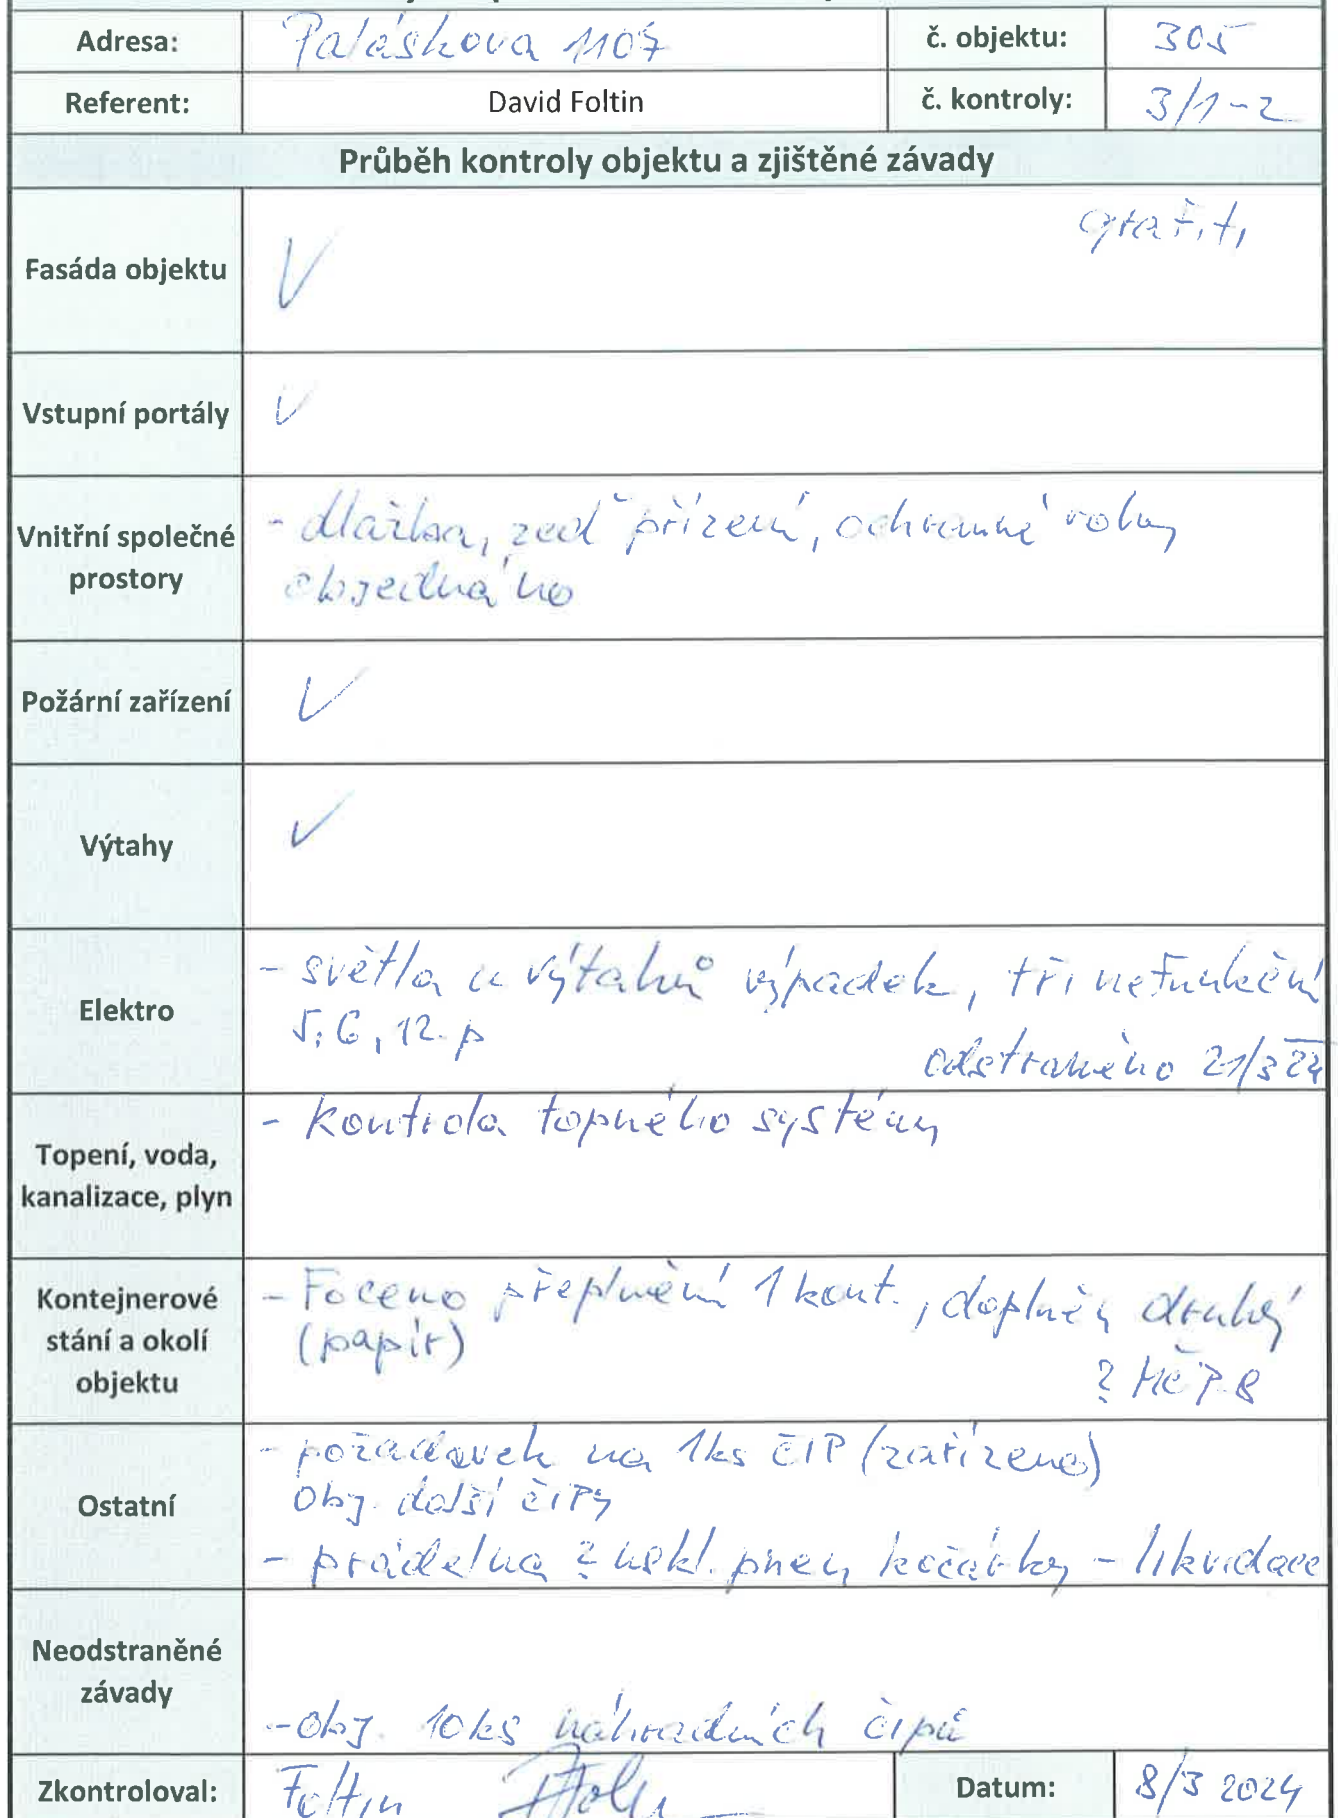 Adresa: Paláskova 1107 č. objektu: 305
Referent: David Foltin č. kontroly: 3/1-2
Průběh kontroly objektu a zjištěné závady
grafiti
Fasáda objektu V
Vstupní portály V
Vnitřní společné prostory - dlažba, zeď přízemí, ochranné rohy
objednáno
Požární zařízení V
Výtahy V
Elektro - světla u výtahů výpadek, tři nefunkční
5, 6, 12. p
odstraněno 21/3 24
Topení, voda, kanalizace, plyn - kontrola topného systému
Kontejnerové stání a okolí objektu - Foceno přeplnění 1 kont., doplněn druhý
(papír)
? MČ P8
Ostatní - požadavek na 1ks ČIP (zařízeno)
obj. další čipy
- prádelna ? uskl. pneu, kočárky - likvidace
Neodstraněné závady
- obj. 10ks náhradních čipů
Zkontroloval: Foltin Datum: 8/3 2024